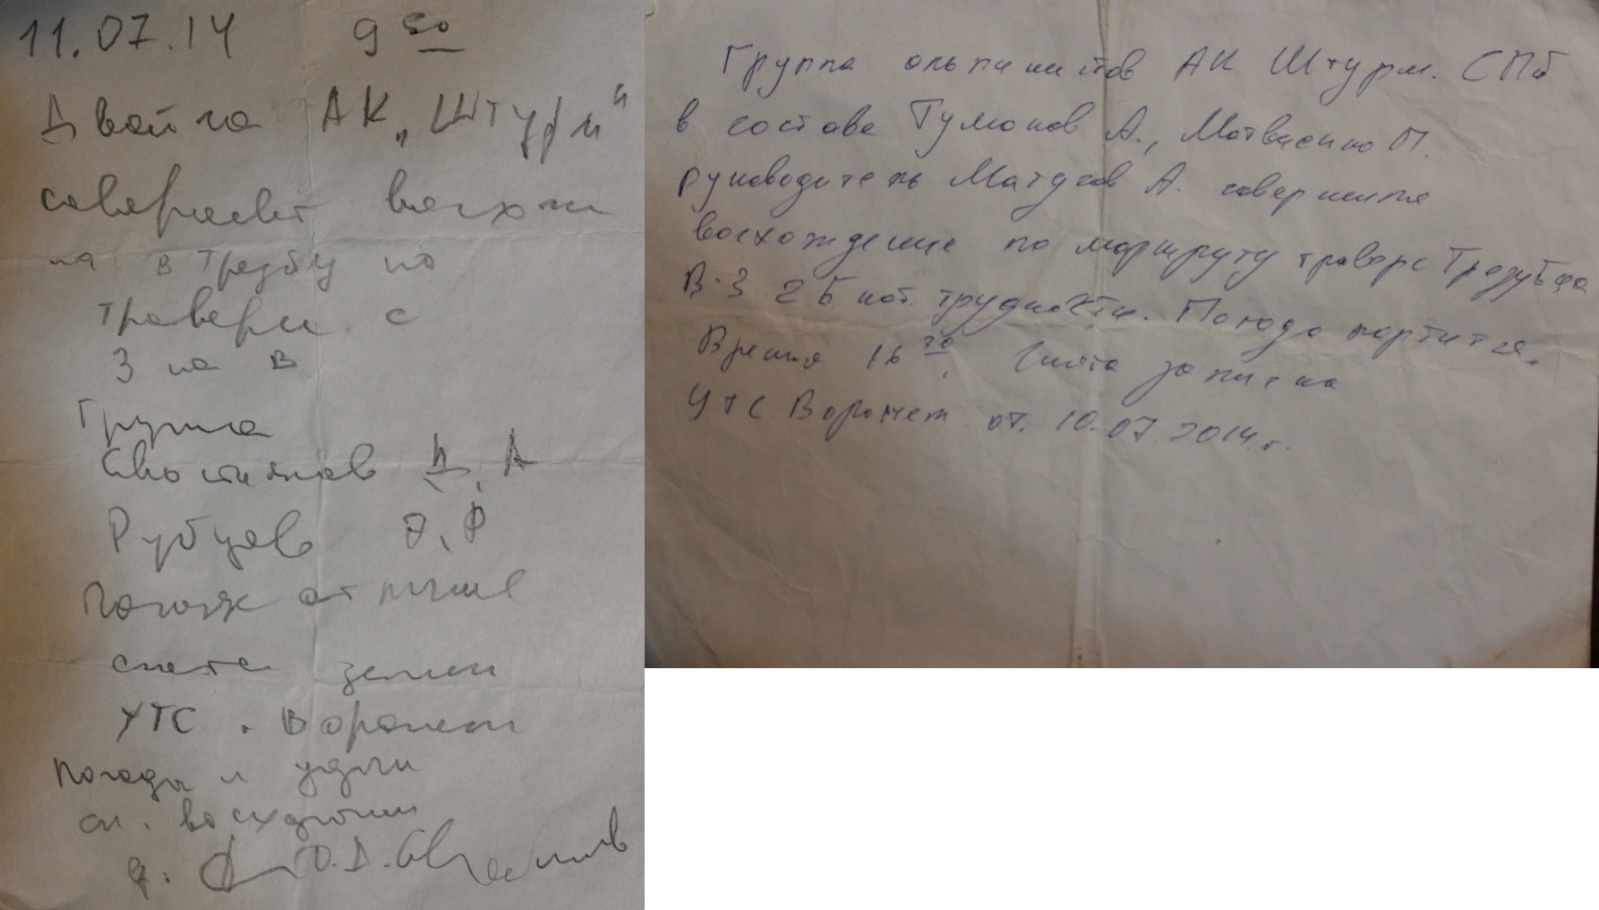 11.07.14 9 50
Двойка АК „Штурм"
совершает восхож
на в. Трезубец по
траверс с
З на В
Группа
Д. А
Рубцов Э. Ф
Погода отличная
снята запись
УТС. Воронеж
Погоды и удачи
сл. восходителям
Группа альпинистов АК Штурм. СПб
в составе Туманов А., Матвиенко П.
руководитель Матусов А. совершила
восхождение по маршруту траверс Трезубца
В-З 2Б кат. трудности. Погода портится.
Время 16 30. Снята записка
УТС. Воронеж от. 10.07.2014 г.